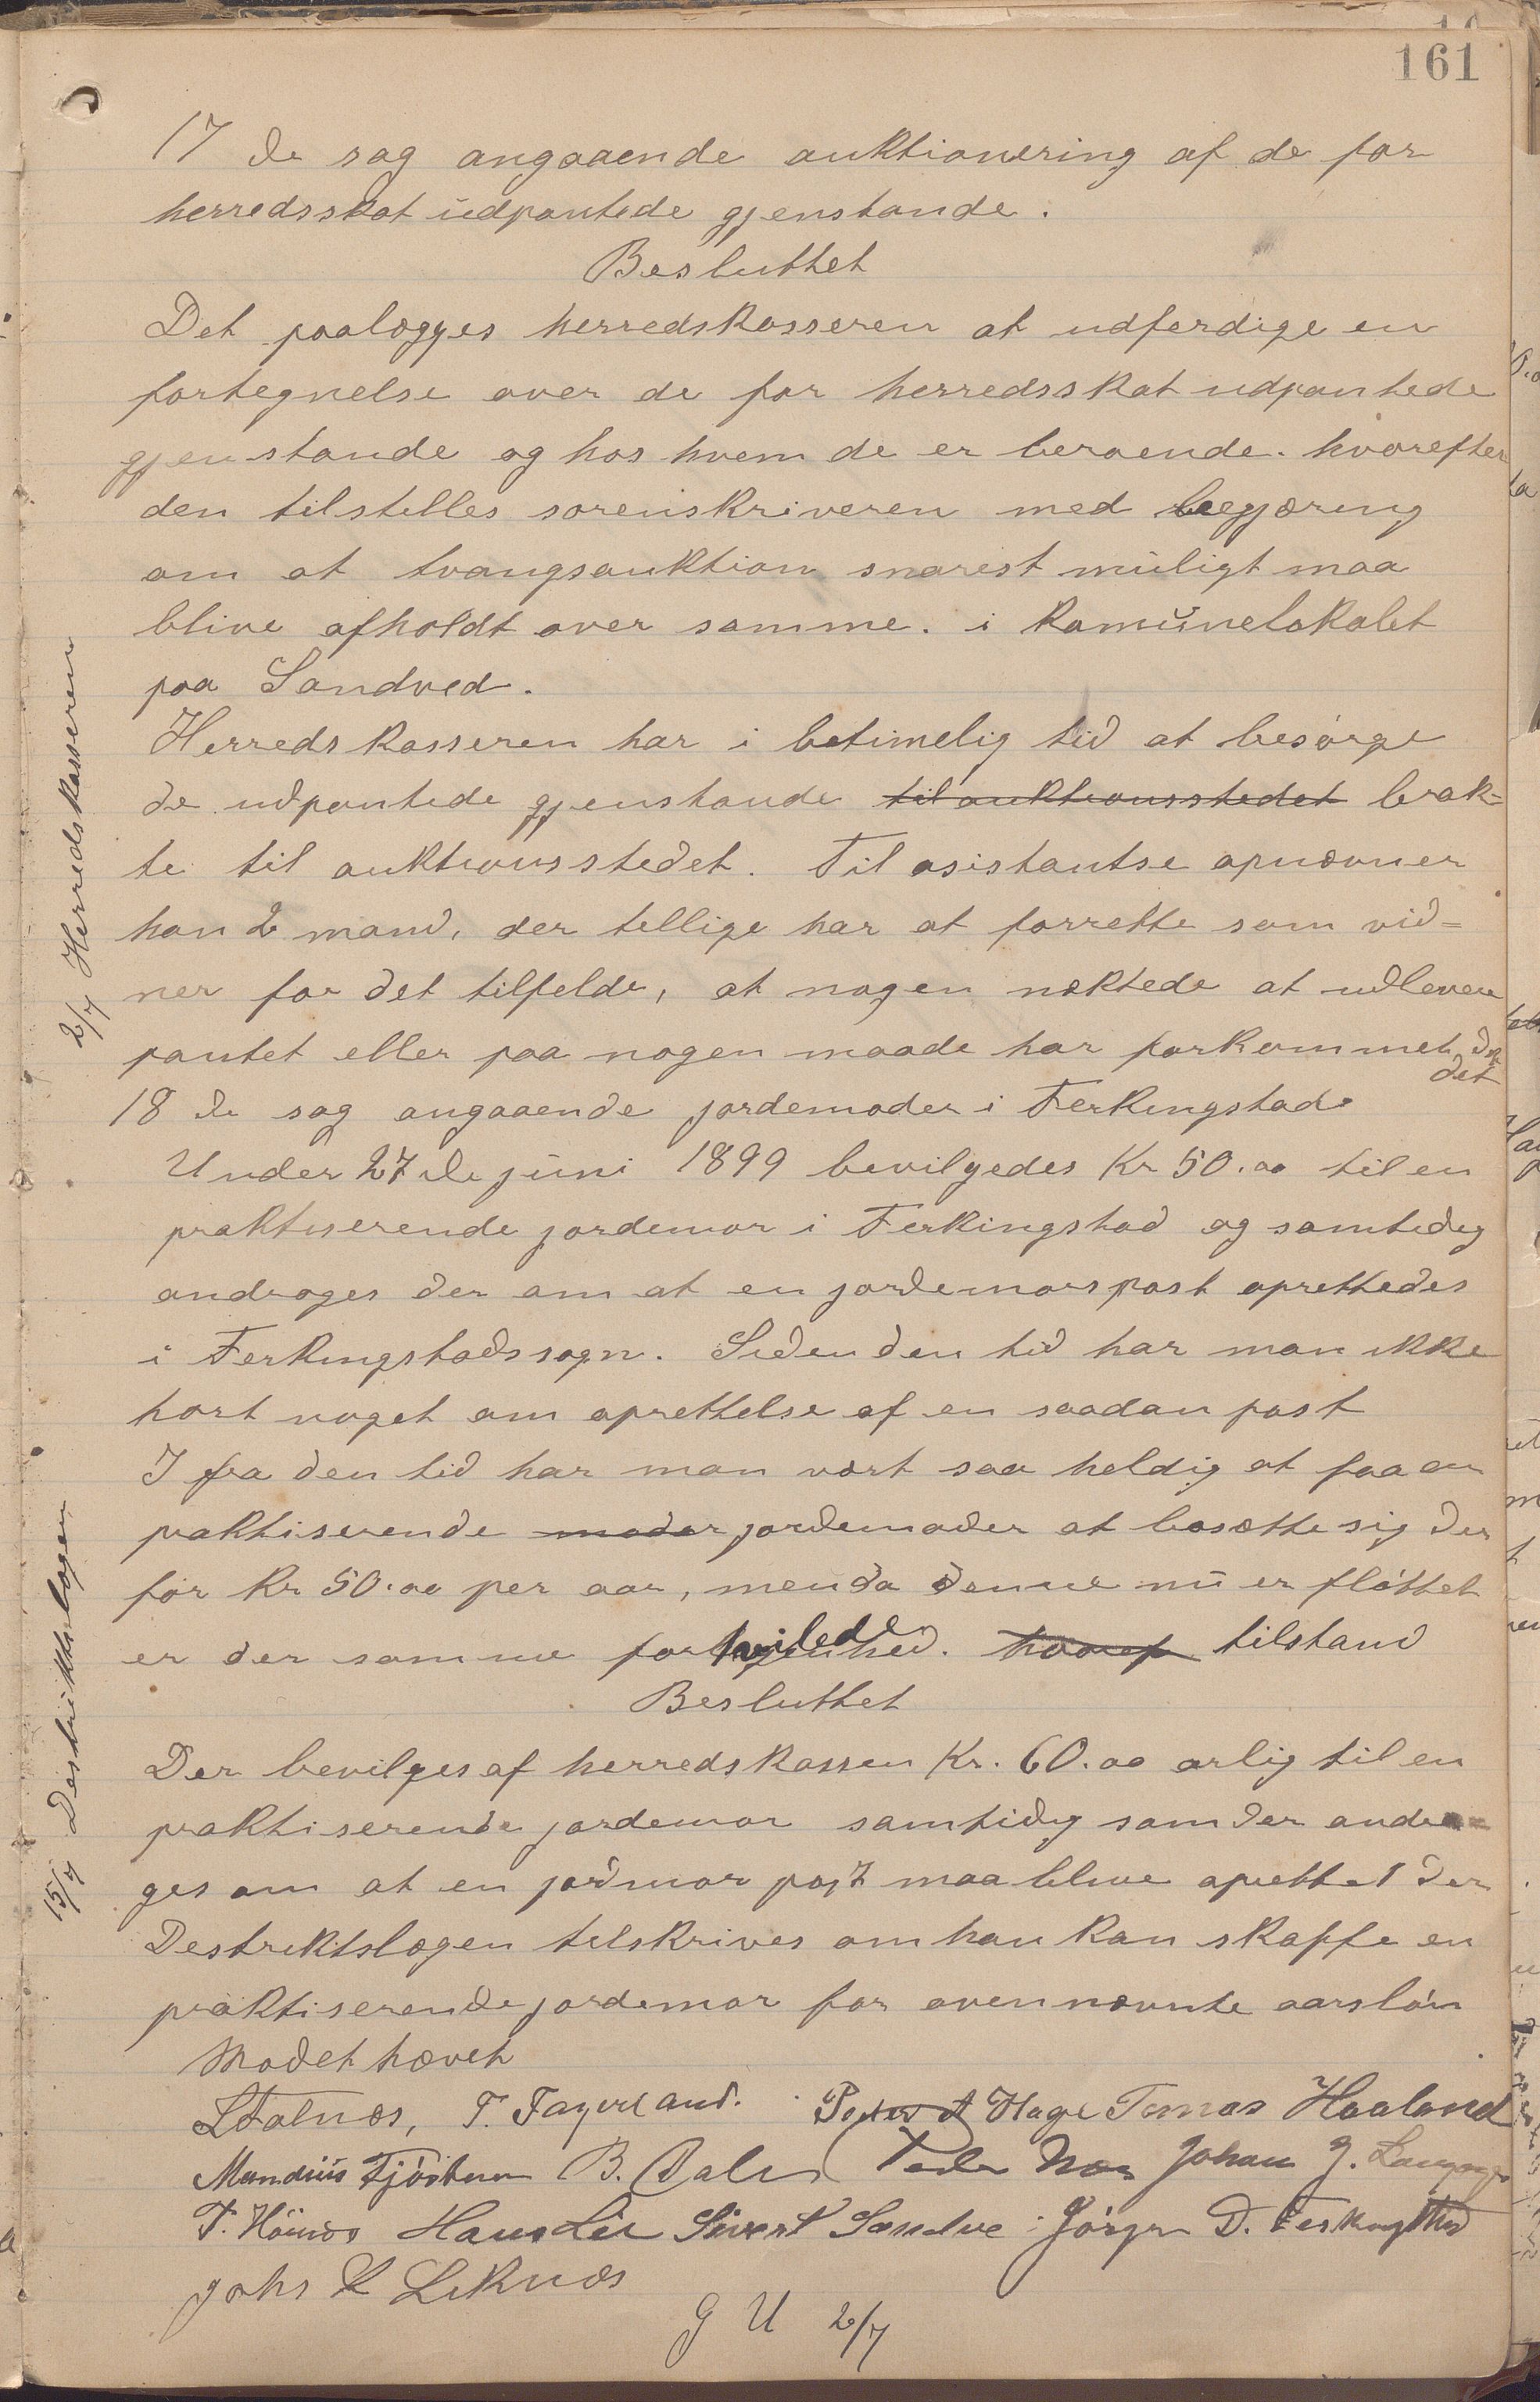 161
17 de sag angaaende auktionering af de for
herredsskat udpantede gjenstande.
Besluttet
Det paalægges herredskasseren at udferdige en
fortegnelse over de for herredsskat udpantede
gjenstande og hos hvem de er beroende. hvorefter
den tilstelles sorenskriveren med begjæring
om at tvangsauktion snarest muligt maa
blive afholdt over samme. i Komunelokalet
paa Sandved.
Herredskasseren har i betimelig tid at besørge
de udpantede gjenstande til auktionsstedet brak=
te til auktionsstedet. Til asistantse opnævner
han 2 mand, der tellige har at forrette som vid=
ner for det tilfelde, at nogen næktede at udlevere
pantet eller paa nogen maade har forkommet det
det
2/7 Herredskasseren
18 de sag angaaende jordemoder i Ferkingstad
Under 27de juni 1899 bevilgedes Kr 50.00 til en
praktiserende jordemor i Ferkingstad og samtedig
androges der om at en jordemorspost oprettedes
i Ferkingstadssogn. Siden den tid har man ikke
hørt noget om oprettelse af en saadan post
I fra den tid har man vært saa heldig at faa en
praktiserende moder jordemoder at bosætte sig der
for Kr 50.00 per aar, men da denne nu er fløttet
er der samme forhviledde tilstand
Besluttet
Der bevilges af herredskassen Kr. 60.00 arlig til en
praktiserende jordemor samtidig som der andra=
ges om at en jordmor post maa blive oprettet der
Destriktslægen telskrives om han kan skaffe en
praktiserende jordemor for ovennævnte aarsløn
15/7 Destriktslægen
Mødet hævet
L Stalnæs, T. Fagerland. Peder A Hage Tomas Haaland
Mandius Fjøsten B. Dale Peder Næs Johan J. Langager
T. Høinæs Hans Lie Sivert Sandve Jørgen D. Ferkingstad
Johs L Liknæs
G U 2/7